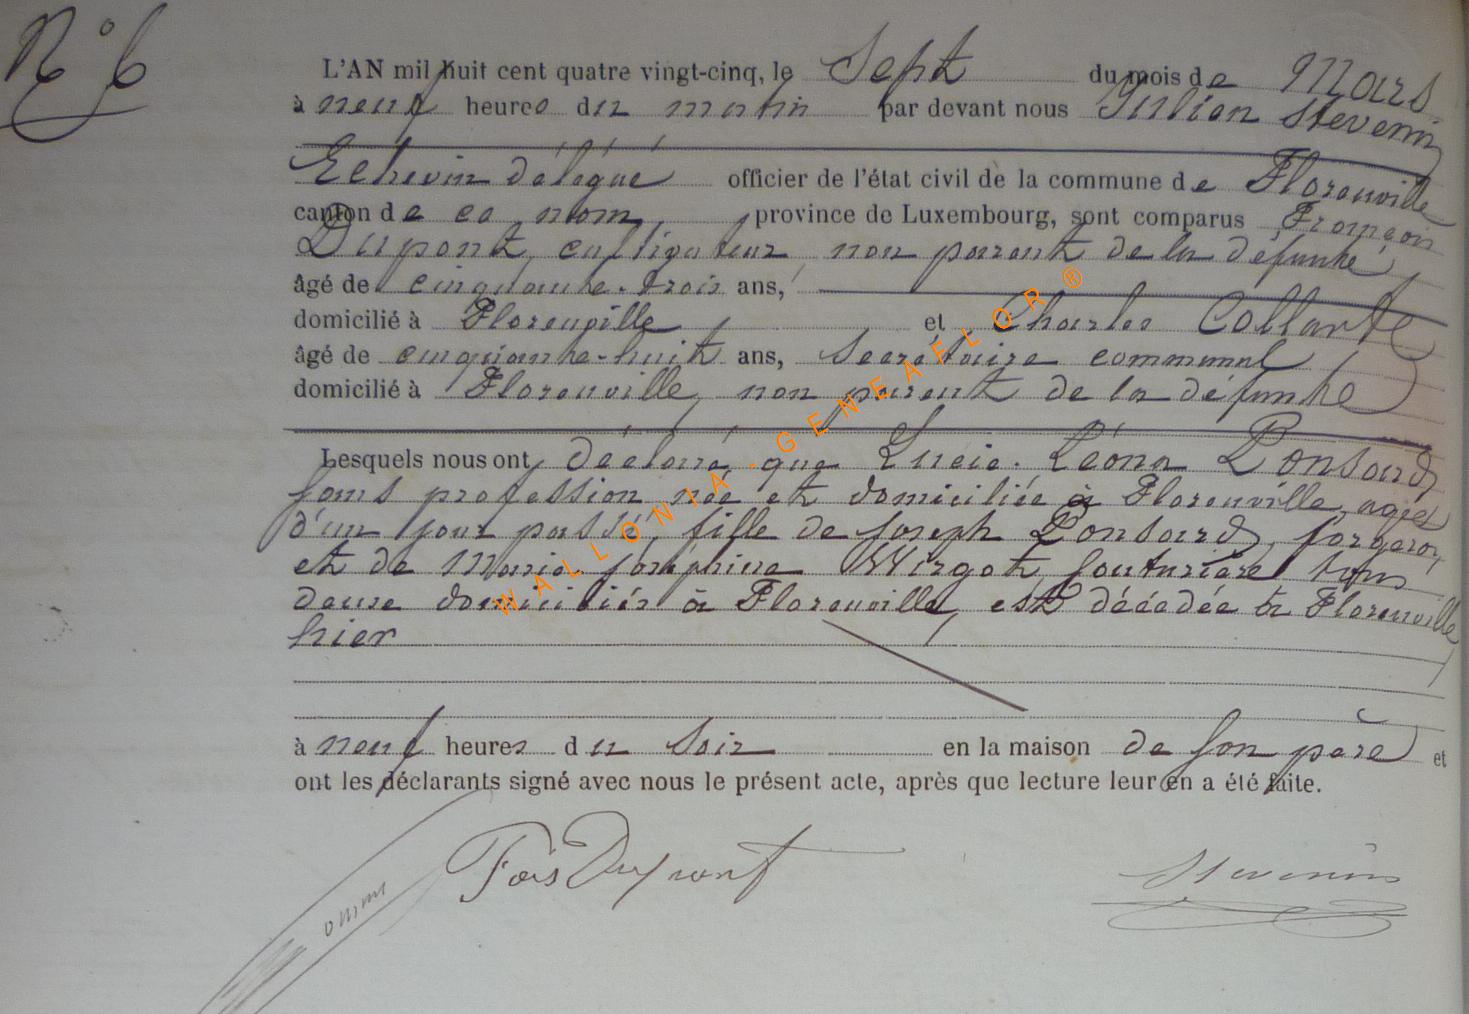 N° 6
L'AN mil huit cent quatre vingt-cinq, le Sept du mois de Mars
à neuf heures du matin par devant nous Julien Stevenin
Echevin délégué officier de l'état civil de la commune de Florenville
canton de ce nom, province de Luxembourg, sont comparus François
Dupont, cultivateur, non parent de la défunte,
âgé de cinquante-trois ans,
domicilié à Florenville, et Charles Collarte
âgé de cinquante-huit ans, Secrétaire communal
domicilié à Florenville, non parent de la défunte
Lesquels nous ont déclaré que Lucie Léona Ponsard,
sans profession, née et domiciliée à Florenville, agée
d'un jour passé, fille de Joseph Ponsard, forgeron,
et de Marie Joséphine Wirgot, Couturière, tous
deux domiciliés à Florenville, est décédée à Florenville,
hier
à neuf heures du Soir en la maison de son père et
ont les déclarants signé avec nous le présent acte, après que lecture leur en a été faite.
Fois Dupont
Stevenin
WALLONIA-GENEAFLOR®